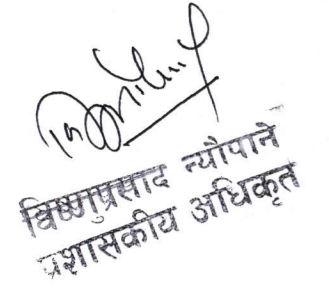 विष्णुप्रसाद न्यौपाने
प्रशासकीय अधिकृत